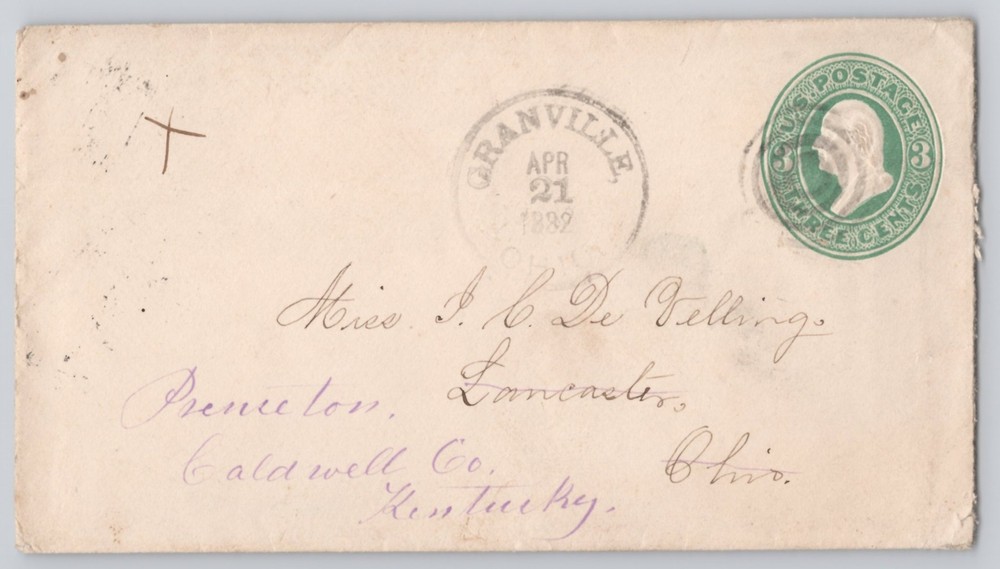 GRANVILLE,
APR
21
1882
OHIO
U.S. POSTAGE
3 3
THREE CENTS
Miss. I. C. De Velling.
Lancaster,
Ohio.
Princeton.
Caldwell Co.
Kentucky.